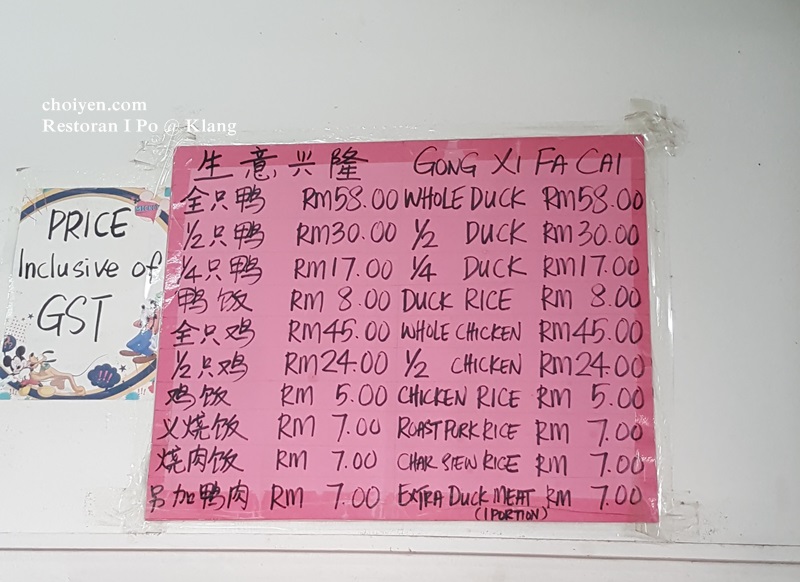 choiyen.com
Restoran I Po @ Klang
PRICE
Inclusive of
GST
生意兴隆 GONG XI FA CAI
全只鸭 RM58.00 WHOLE DUCK RM58.00
1/2只鸭 RM30.00 1/2 DUCK RM30.00
1/4只鸭 RM17.00 1/4 DUCK RM17.00
鸭饭 RM 8.00 DUCK RICE RM 8.00
全只鸡 RM45.00 WHOLE CHICKEN RM45.00
1/2只鸡 RM24.00 1/2 CHICKEN RM24.00
鸡饭 RM 5.00 CHICKEN RICE RM 5.00
义烧饭 RM 7.00 ROAST PORK RICE RM 7.00
烧肉饭 RM 7.00 CHAR SIEW RICE RM 7.00
另加鸭肉 RM 7.00 EXTRA DUCK MEAT RM 7.00
(1 PORTION)